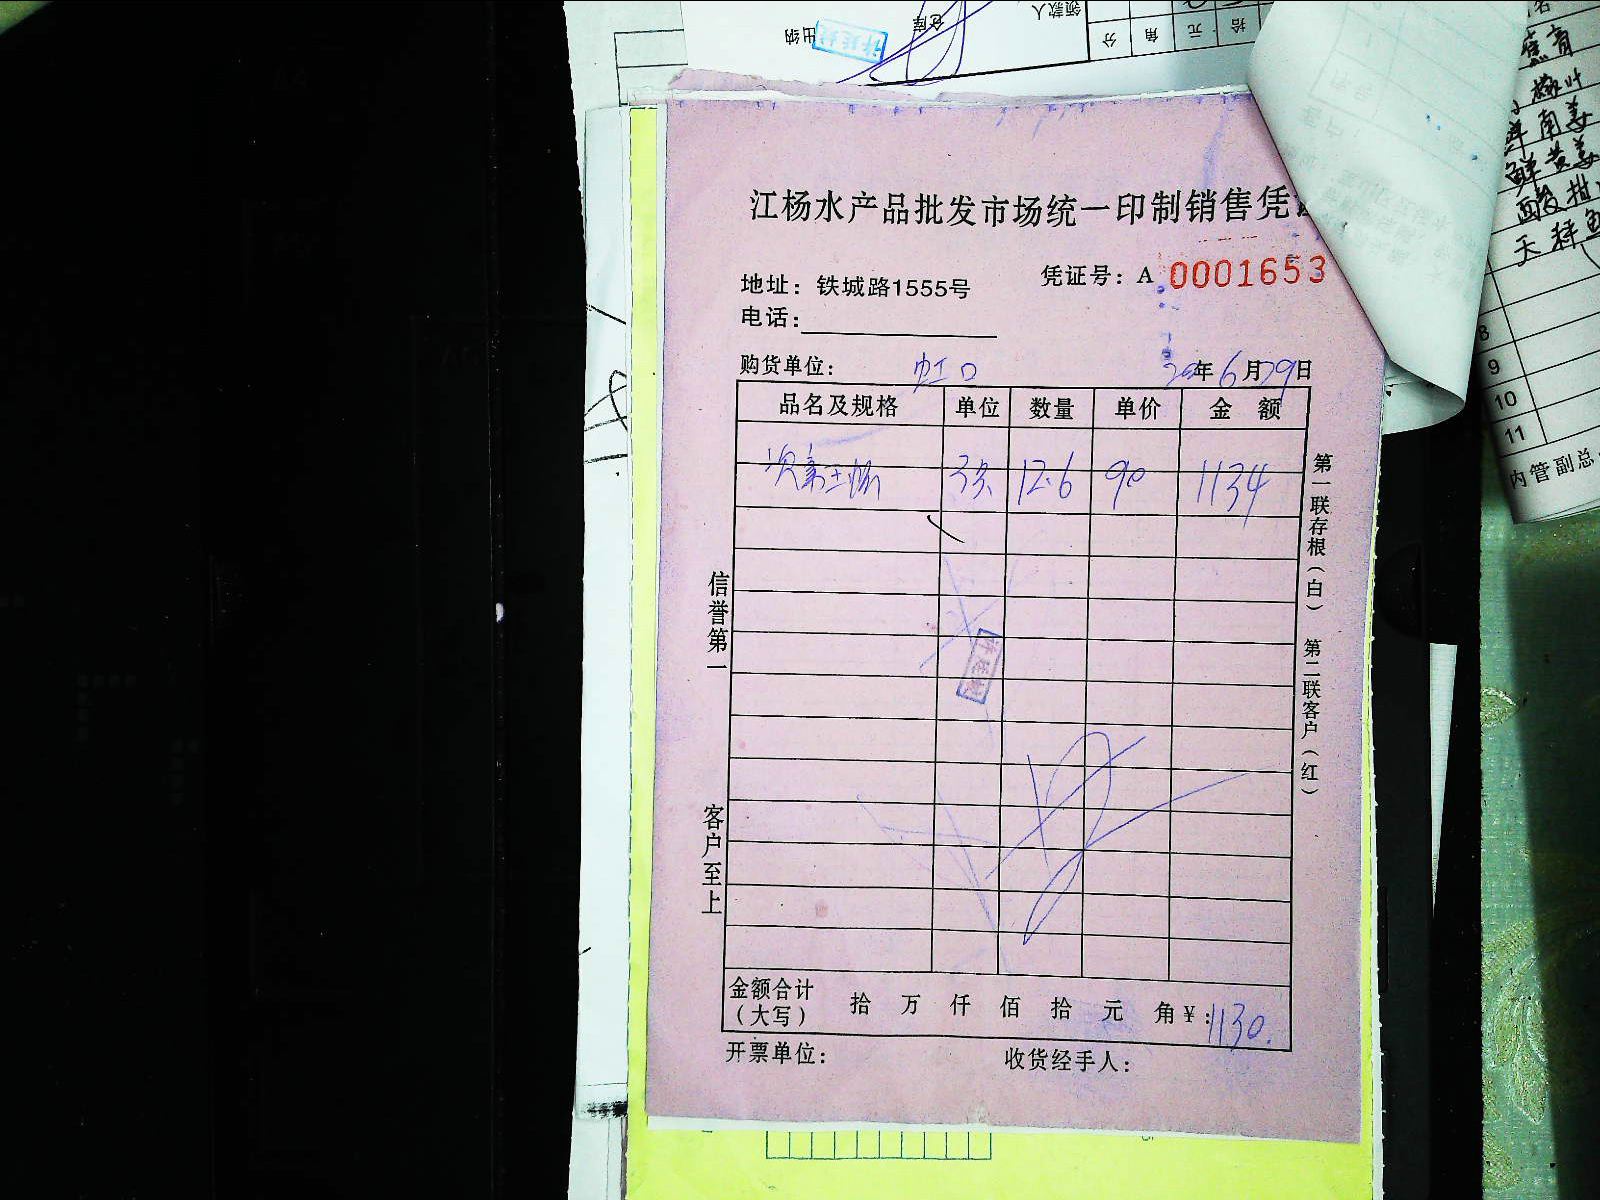 出纳
仓库
领款人
分 角 元 拾
江杨水产品批发市场统一印制销售凭
地址：铁城路1555号
凭证号：A 0001653
电话：
购货单位： 虹口
年6月29日
品名及规格 单位 数量 单价 金额
3条 12.6 90 1134
信誉第一
客户至上
第一联存根（白）
第二联客户（红）
金额合计（大写） 拾 万 仟 佰 拾 元 角 ¥：1130.
开票单位：
收货经手人：
名
南姜
鲜黄姜
8
9
10
11
内管副总